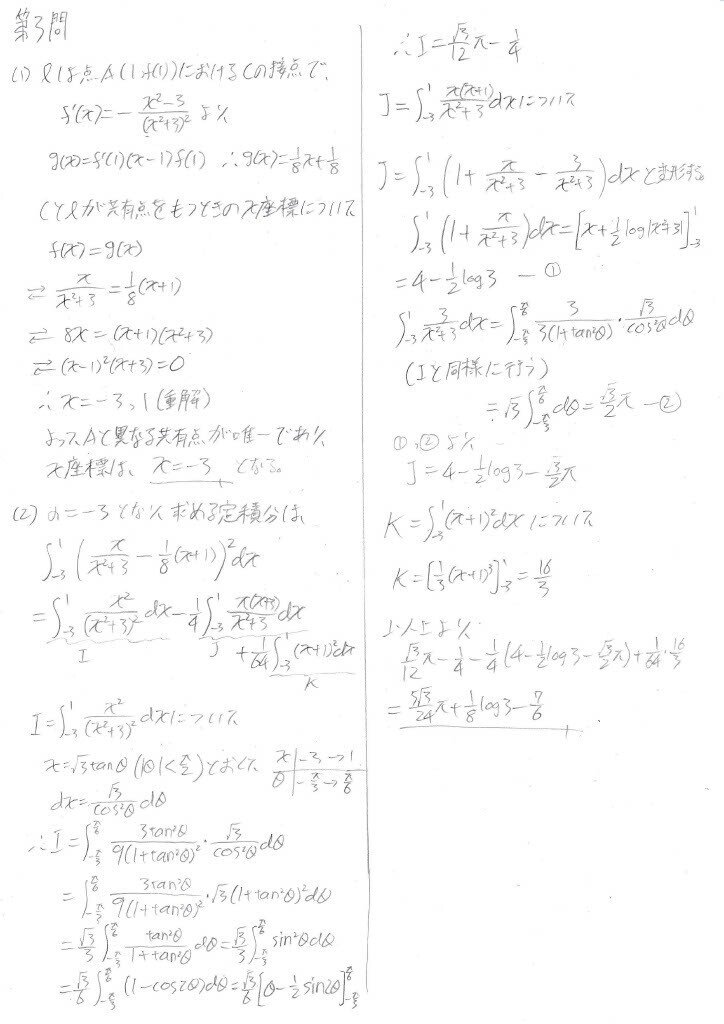 第3問
(1) lは点A(1,f(1))におけるCの接点で、
f'(x)=-\frac{x²-3}{(x²+3)²} より
g(x)=f'(1)(x-1)f(1) ∴g(x)=\frac{1}{8}x+\frac{1}{8}
Cとlが共有点をもつときのx座標について
f(x)=g(x)
⇄ \frac{x}{x²+3}=\frac{1}{8}(x+1)
⇄ 8x=(x+1)(x²+3)
⇄ (x-1)²(x+3)=0
∴x=-3,1(重解)
よってAと異なる共有点が唯一であり
x座標は、x=-3 となる。
(2) α=-3 となり求める定積分は
∫_{-3}^{1} (\frac{x}{x²+3}-\frac{1}{8}(x+1))²dx
=∫_{-3}^{1} \frac{x²}{(x²+3)²}dx-\frac{1}{4}∫_{-3}^{1} \frac{x(x+3)}{x²+3}dx
I J +\frac{1}{64}∫_{-3}^{1}(x+1)²dx
K
I=∫_{-3}^{1} \frac{x²}{(x²+3)²}dxについて
x=√3tanθ (|θ|<\frac{π}{2})とおくと x|-3→1
dx=\frac{√3}{cos²θ}dθ θ|-\frac{π}{3}→\frac{π}{6}
∴I=∫_{-\frac{π}{3}}^{\frac{π}{6}} \frac{3tan²θ}{9(1+tan²θ)²}・\frac{√3}{cos²θ}dθ
=∫_{-\frac{π}{3}}^{\frac{π}{6}} \frac{3tan²θ}{9(1+tan²θ)²}・√3(1+tan²θ)²dθ
=\frac{√3}{3}∫_{-\frac{π}{3}}^{\frac{π}{6}} \frac{tan²θ}{1+tan²θ}dθ=\frac{√3}{3}∫_{-\frac{π}{3}}^{\frac{π}{6}}sin²θdθ
=\frac{√3}{6}∫_{-\frac{π}{3}}^{\frac{π}{6}}(1-cos2θ)dθ=\frac{√3}{6}[θ-\frac{1}{2}sin2θ]_{-\frac{π}{3}}^{\frac{π}{6}}
∴I=\frac{√3}{12}π-\frac{1}{4}
J=∫_{-3}^{1} \frac{x(x+1)}{x²+3}dxについて
J=∫_{-3}^{1}(1+\frac{x}{x²+3}-\frac{3}{x²+3})dxと変形する
∫_{-3}^{1}(1+\frac{x}{x²+3})dx=[x+\frac{1}{2}log|x²+3|]_{-3}^{1}
=4-\frac{1}{2}log3 ―①
∫_{-3}^{1} \frac{3}{x²+3}dx=∫_{-\frac{π}{3}}^{\frac{π}{6}} \frac{3}{3(1+tan²θ)}・\frac{√3}{cos²θ}dθ
(Iと同様に行う)
=√3∫_{-\frac{π}{3}}^{\frac{π}{6}}dθ=\frac{√3}{2}π ―②
①,②より
J=4-\frac{1}{2}log3-\frac{√3}{2}π
K=∫_{-3}^{1}(x+1)²dxについて
K=[\frac{1}{3}(x+1)³]_{-3}^{1}=\frac{16}{3}
以上より
\frac{√3}{12}π-\frac{1}{4}-\frac{1}{4}(4-\frac{1}{2}log3-\frac{√3}{2}π)+\frac{1}{64}・\frac{16}{3}
=\frac{5√3}{24}π+\frac{1}{8}log3-\frac{7}{6}